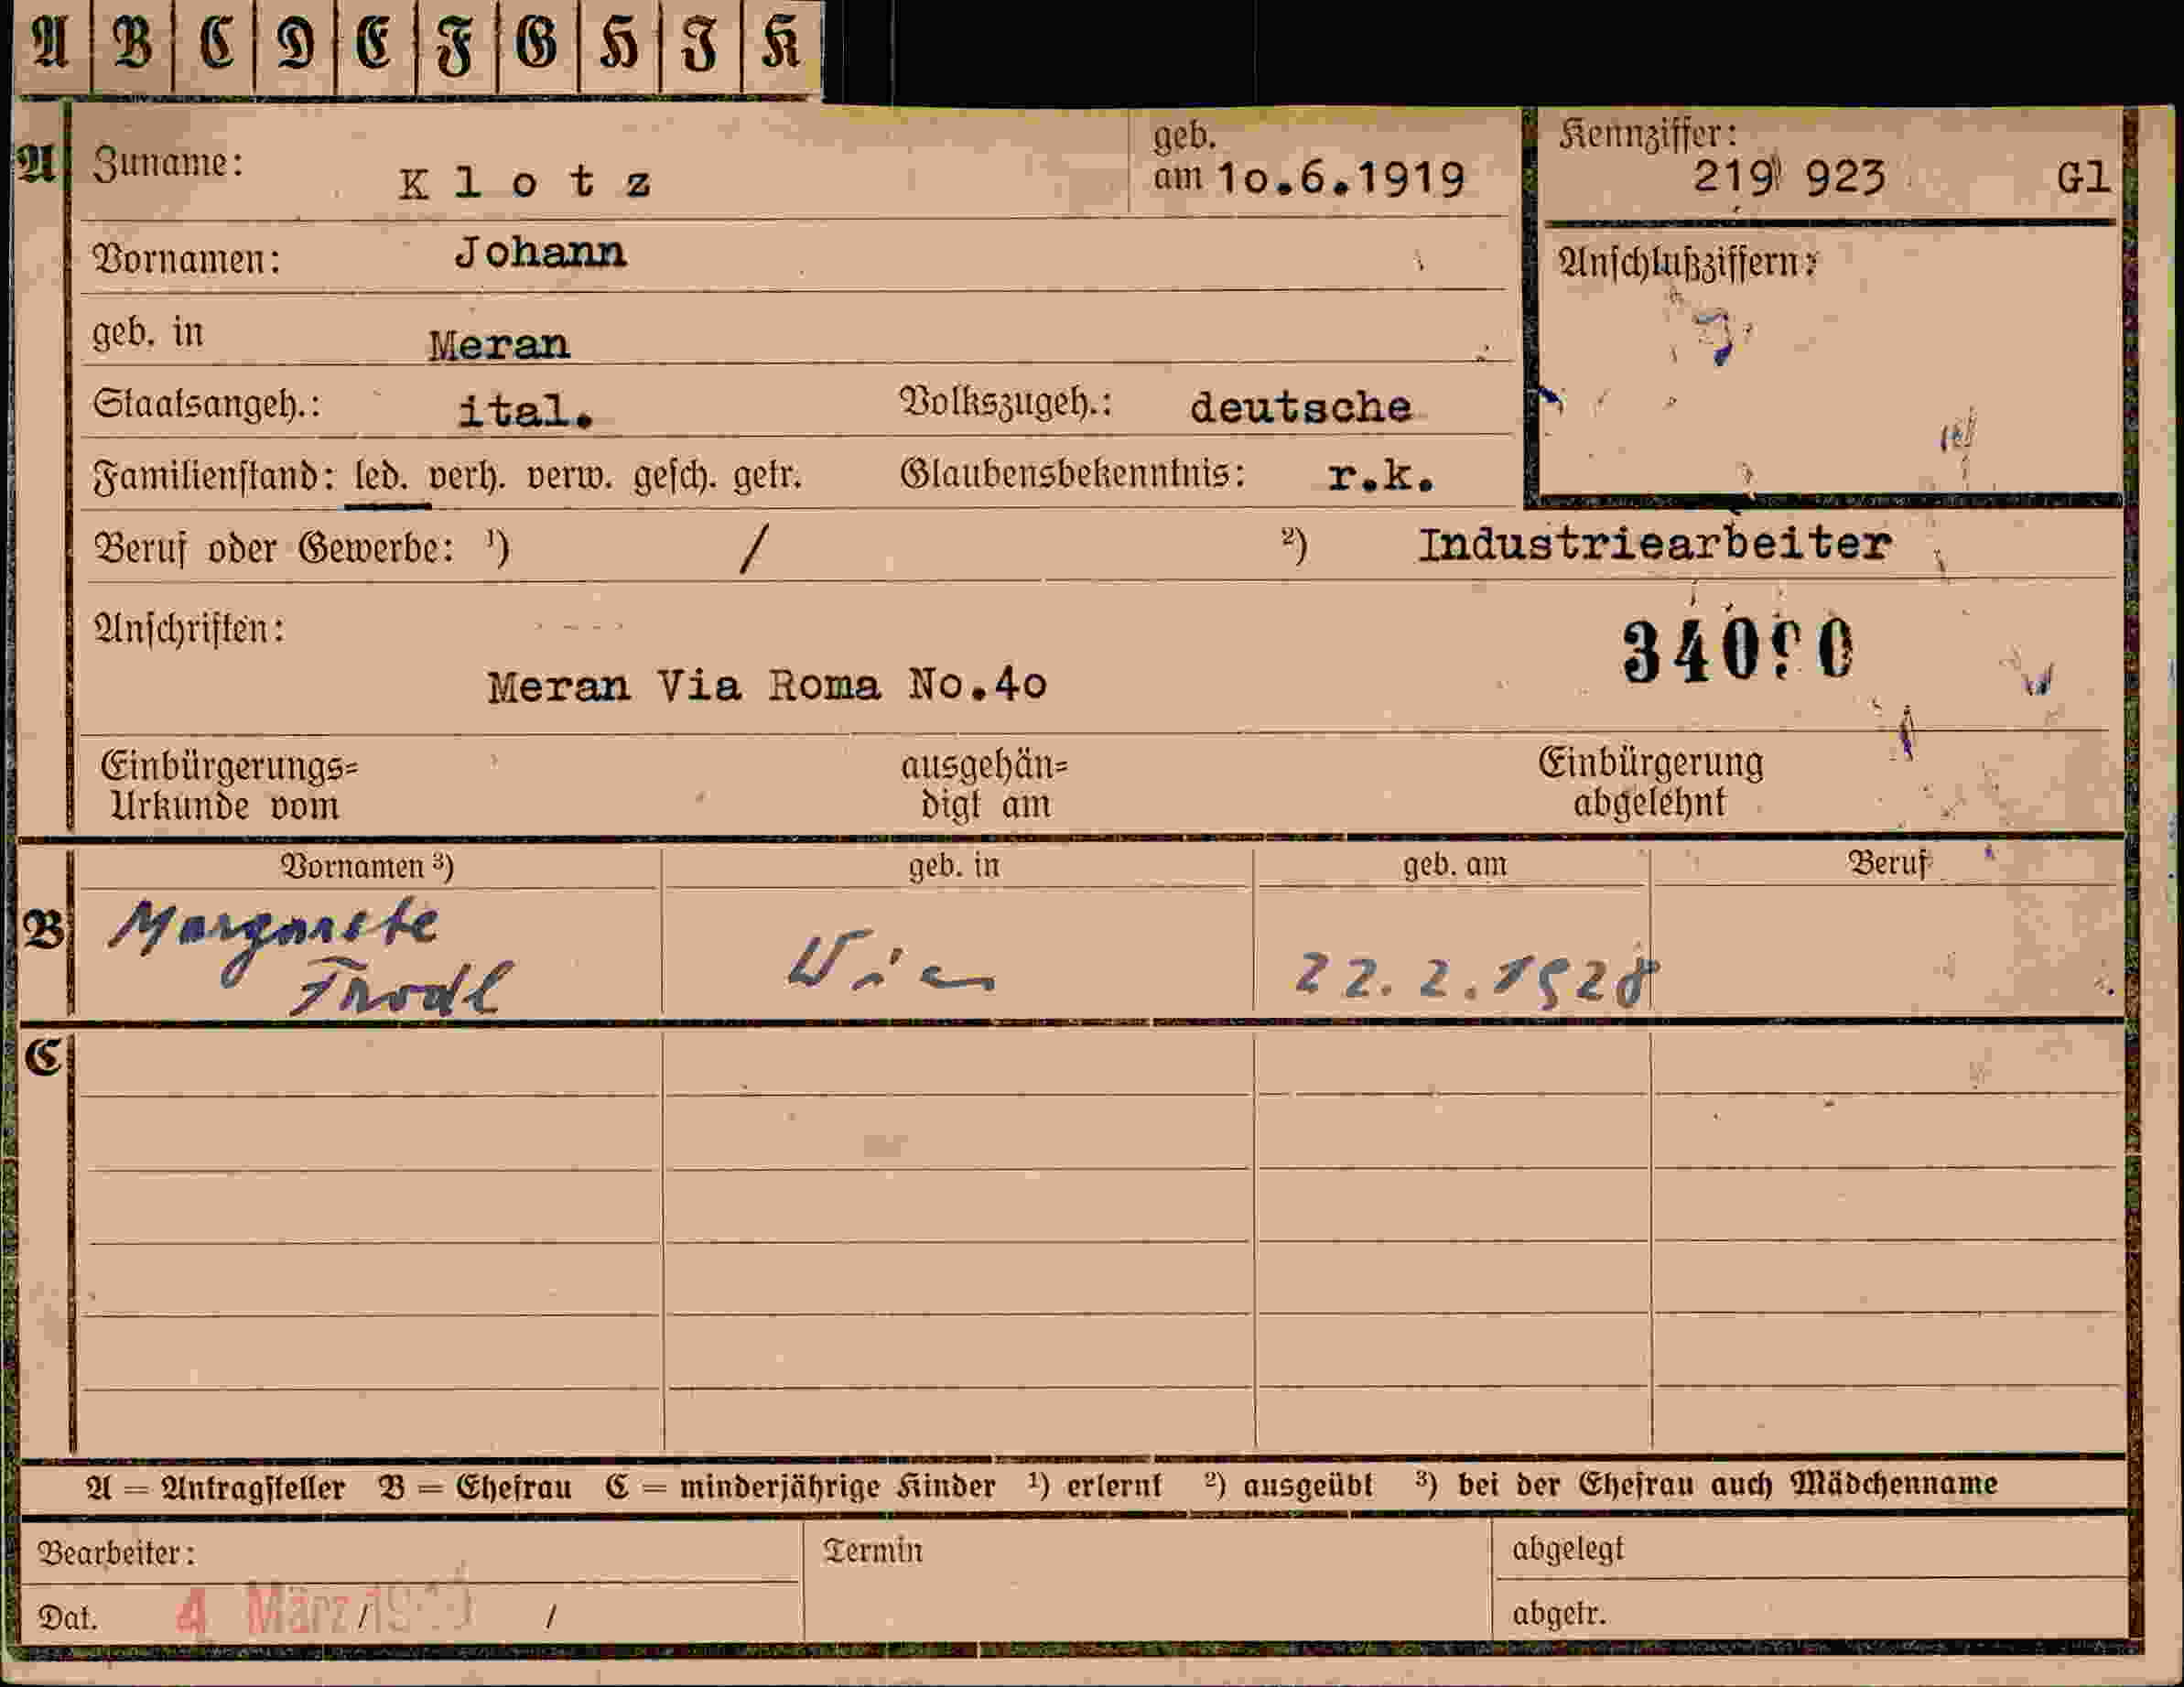 A B C D E F G H J K
A Zuname: Klotz geb. am 1o.6.1919 Kennziffer: 219 923 Gl
Vornamen: Johann Anschlußziffern:
geb. in Meran
Staatsangeh.: ital. Volkszugeh.: deutsche
Familienstand: led. verh. verw. gesch. getr. Glaubensbekenntnis: r.k.
Beruf oder Gewerbe: ¹) / ²) Industriearbeiter
Anschriften:
Meran Via Roma No.4o
Einbürgerungs= ausgehän= Einbürgerung
Urkunde vom digt am abgelehnt
Vornamen ³) geb. in geb. am Beruf
B Margarete
Frodl Wien 22.2.1928
C
A = Antragsteller B = Ehefrau C = minderjährige Kinder ¹) erlernt ²) ausgeübt ³) bei der Ehefrau auch Mädchenname
Bearbeiter: Termin abgelegt
Dat. 4 März / / abgetr.